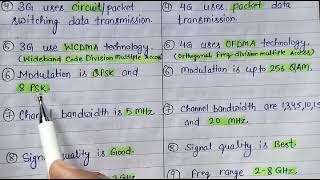 ④ 3G uses circuit/packet
switching data transmission.
⑤ 3G use WCDMA technology.
(Wideband Code Division Multiple Access)
⑥ Modulation is QPSK and
8 PSK.
⑦ Channel bandwidth is 5 MHz.
⑧ Signal quality is Good.
④ 4G uses packet data
transmission.
⑤ 4G uses OFDMA technology.
(Orthogonal Freq division Multiple Access)
⑥ Modulation is up to 256 QAM.
⑦ Channel bandwidth are
and 20 MHz.
⑧ Signal quality is Best.
⑨ Freq range 2-8 GHz